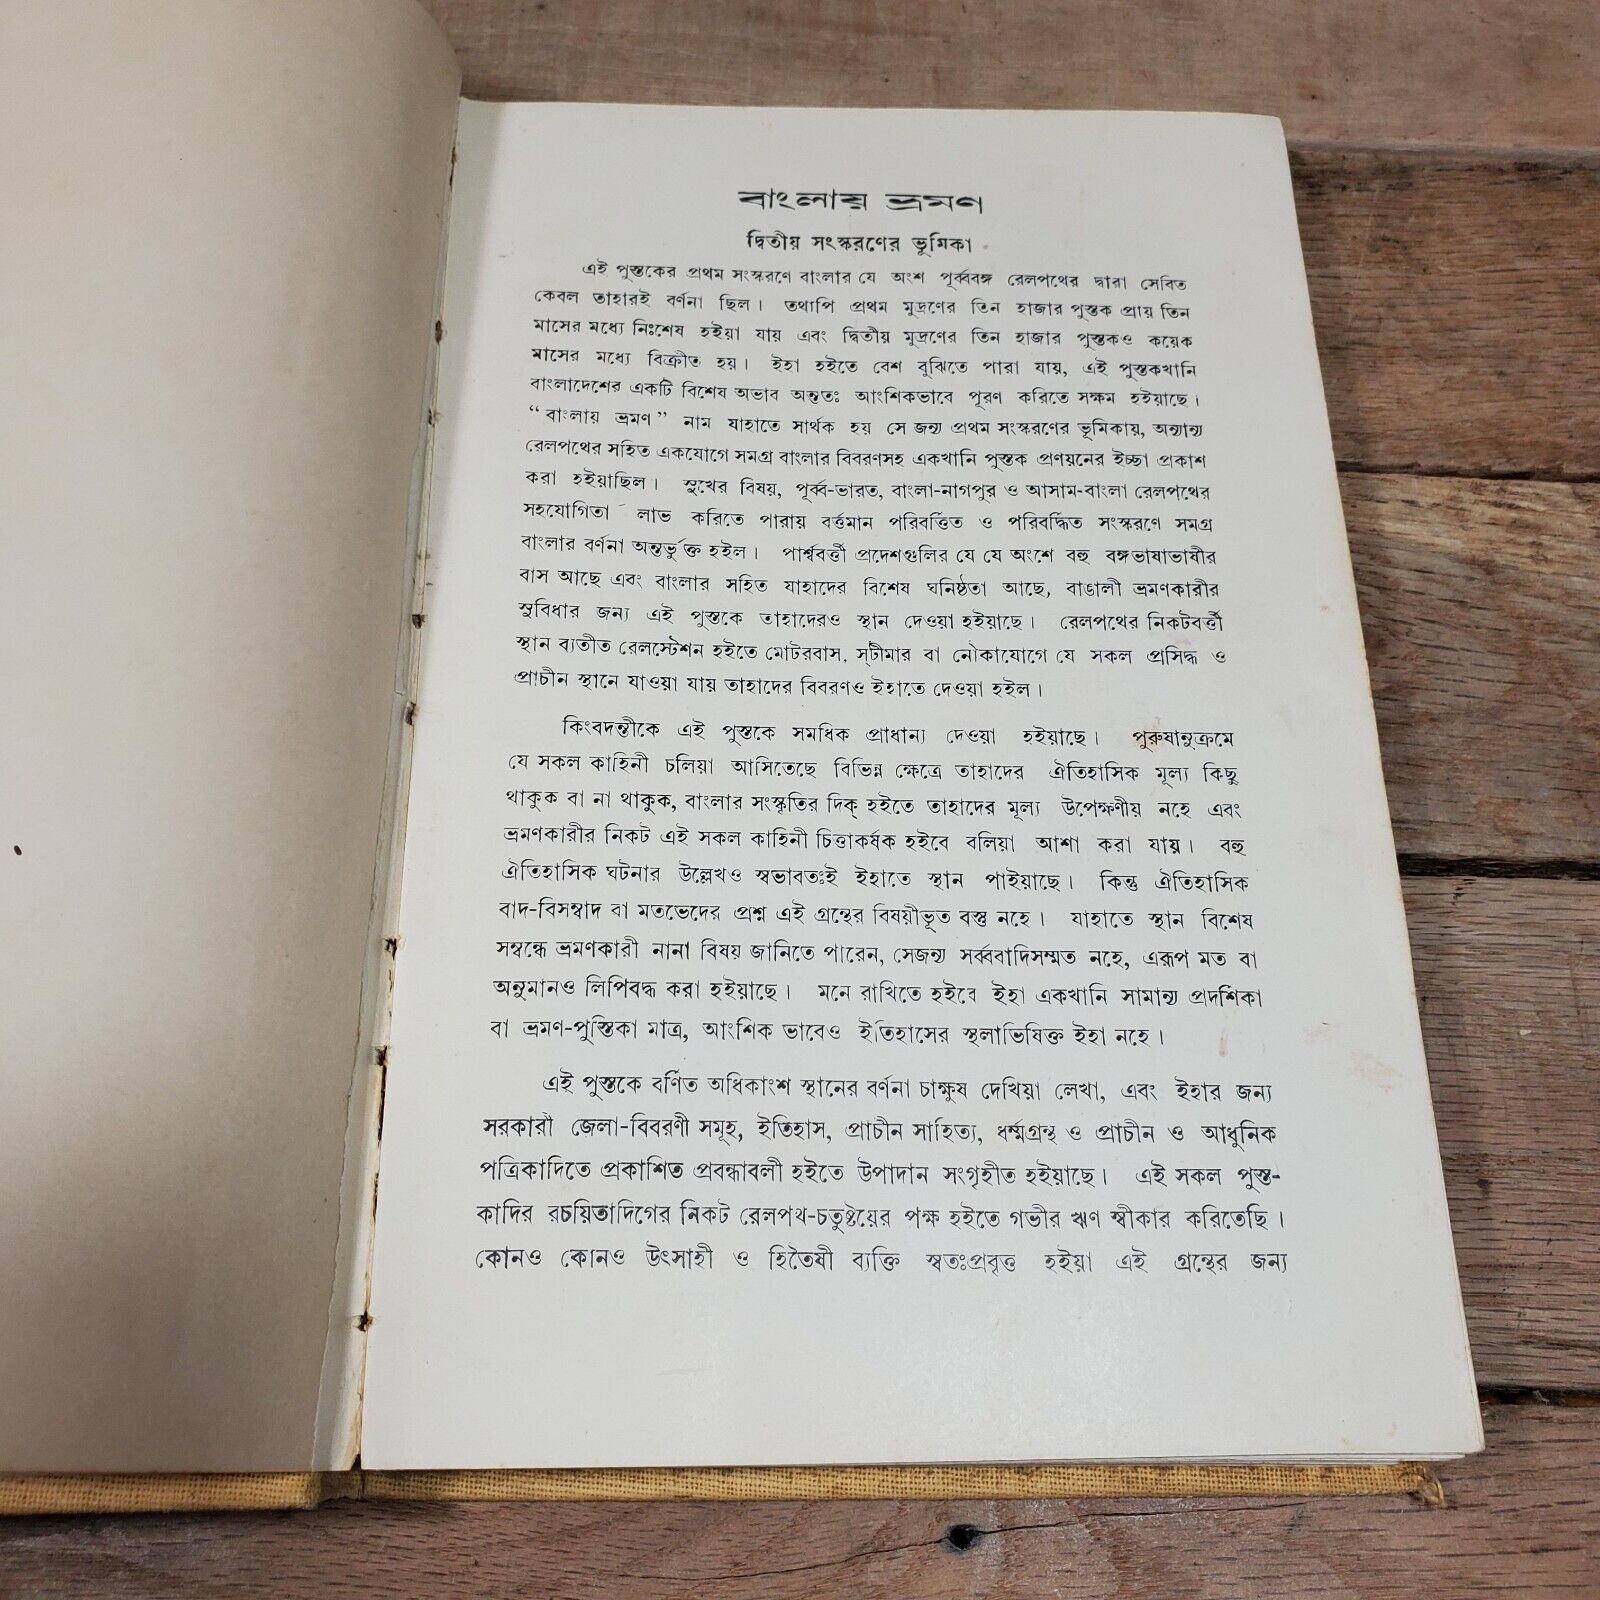 বাংলায় ভ্রমণ
দ্বিতীয় সংস্করণের ভূমিকা
এই পুস্তকের প্রথম সংস্করণে বাংলার যে অংশ পূর্ব্ববঙ্গ রেলপথের দ্বারা সেবিত
কেবল তাহারই বর্ণনা ছিল। তথাপি প্রথম মুদ্রণের তিন হাজার পুস্তক প্রায় তিন
মাসের মধ্যে নিঃশেষ হইয়া যায় এবং দ্বিতীয় মুদ্রণের তিন হাজার পুস্তকও কয়েক
মাসের মধ্যে বিক্রীত হয়। ইহা হইতে বেশ বুঝিতে পারা যায়, এই পুস্তকখানি
বাংলাদেশের একটি বিশেষ অভাব অন্ততঃ আংশিকভাবে পূরণ করিতে সক্ষম হইয়াছে।
“বাংলায় ভ্রমণ” নাম যাহাতে সার্থক হয় সে জন্য প্রথম সংস্করণের ভূমিকায়, অন্যান্য
রেলপথের সহিত একযোগে সমগ্র বাংলার বিবরণসহ একখানি পুস্তক প্রণয়নের ইচ্ছা প্রকাশ
করা হইয়াছিল। সুখের বিষয়, পূর্ব্ব-ভারত, বাংলা-নাগপুর ও আসাম-বাংলা রেলপথের
সহযোগিতা লাভ করিতে পারায় বর্ত্তমান পরিবর্ত্তিত ও পরিবর্দ্ধিত সংস্করণে সমগ্র
বাংলার বর্ণনা অন্তর্ভুক্ত হইল। পার্শ্ববর্ত্তী প্রদেশগুলির যে যে অংশে বহু বঙ্গভাষাভাষীর
বাস আছে এবং বাংলার সহিত যাহাদের বিশেষ ঘনিষ্ঠতা আছে, বাঙালী ভ্রমণকারীর
সুবিধার জন্য এই পুস্তকে তাহাদেরও স্থান দেওয়া হইয়াছে। রেলপথের নিকটবর্ত্তী
স্থান ব্যতীত রেলস্টেশন হইতে মোটরবাস, স্টীমার বা নৌকাযোগে যে সকল প্রসিদ্ধ ও
প্রাচীন স্থানে যাওয়া যায় তাহাদের বিবরণও ইহাতে দেওয়া হইল।
কিংবদন্তীকে এই পুস্তকে সমধিক প্রাধান্য দেওয়া হইয়াছে। পুরুষানুক্রমে
যে সকল কাহিনী চলিয়া আসিতেছে বিভিন্ন ক্ষেত্রে তাহাদের ঐতিহাসিক মূল্য কিছু
থাকুক বা না থাকুক, বাংলার সংস্কৃতির দিক্ হইতে তাহাদের মূল্য উপেক্ষণীয় নহে এবং
ভ্রমণকারীর নিকট এই সকল কাহিনী চিত্তাকর্ষক হইবে বলিয়া আশা করা যায়। বহু
ঐতিহাসিক ঘটনার উল্লেখও স্বভাবতঃই ইহাতে স্থান পাইয়াছে। কিন্তু ঐতিহাসিক
বাদ-বিসম্বাদ বা মতভেদের প্রশ্ন এই গ্রন্থের বিষয়ীভূত বস্তু নহে। যাহাতে স্থান বিশেষ
সম্বন্ধে ভ্রমণকারী নানা বিষয় জানিতে পারেন, সেজন্য সর্ব্ববাদিসম্মত নহে, এরূপ মত বা
অনুমানও লিপিবদ্ধ করা হইয়াছে। মনে রাখিতে হইবে ইহা একখানি সামান্য প্রদর্শিকা
বা ভ্রমণ-পুস্তিকা মাত্র, আংশিক ভাবেও ইতিহাসের স্থলাভিষিক্ত ইহা নহে।
এই পুস্তকে বর্ণিত অধিকাংশ স্থানের বর্ণনা চাক্ষুষ দেখিয়া লেখা, এবং ইহার জন্য
সরকারী জেলা-বিবরণী সমূহ, ইতিহাস, প্রাচীন সাহিত্য, ধর্ম্মগ্রন্থ ও প্রাচীন ও আধুনিক
পত্রিকাদিতে প্রকাশিত প্রবন্ধাবলী হইতে উপাদান সংগৃহীত হইয়াছে। এই সকল পুস্ত-
কাদির রচয়িতাদিগের নিকট রেলপথ-চতুষ্টয়ের পক্ষ হইতে গভীর ঋণ স্বীকার করিতেছি।
কোনও কোনও উৎসাহী ও হিতৈষী ব্যক্তি স্বতঃপ্রবৃত্ত হইয়া এই গ্রন্থের জন্য